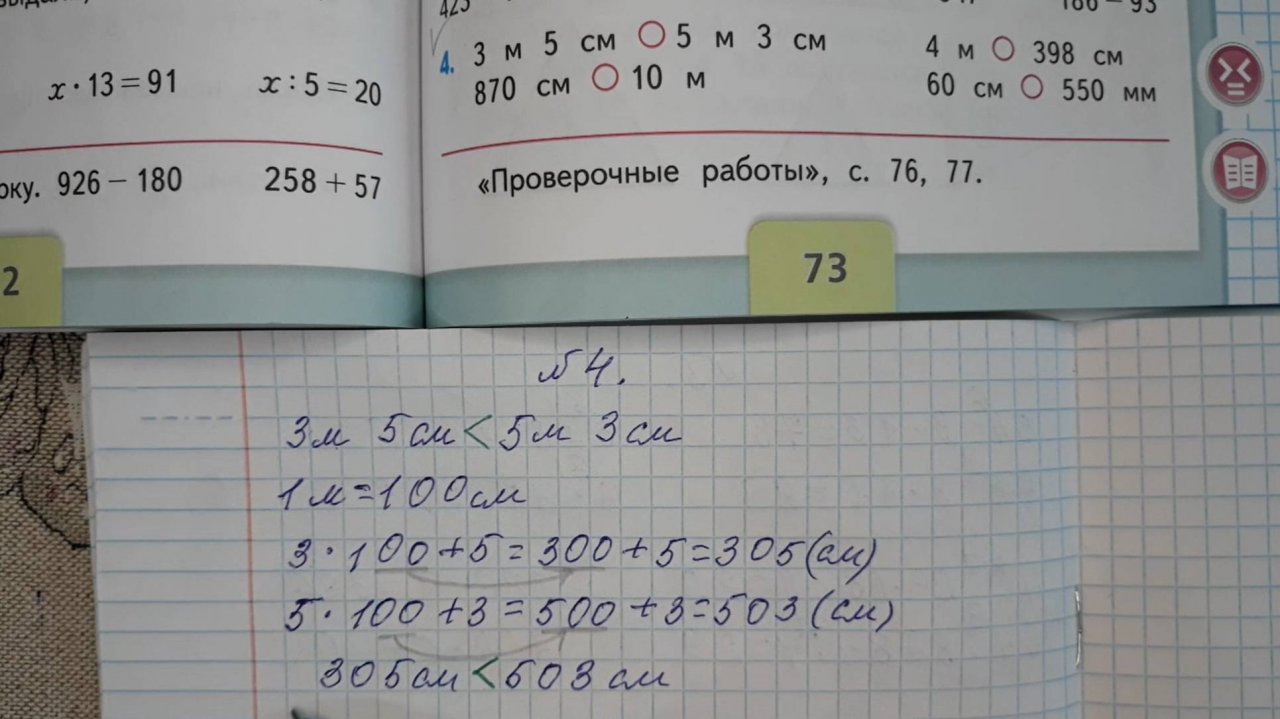 x · 13 = 91 x : 5 = 20
926 − 180 258 + 57
2
425
186 − 93
4. 3 м 5 см ○ 5 м 3 см 4 м ○ 398 см
870 см ○ 10 м 60 см ○ 550 мм
«Проверочные работы», с. 76, 77.
73
№4.
3м 5см < 5м 3см
1м = 100см
3 · 100 + 5 = 300 + 5 = 305 (см)
5 · 100 + 3 = 500 + 3 = 503 (см)
305см < 503см